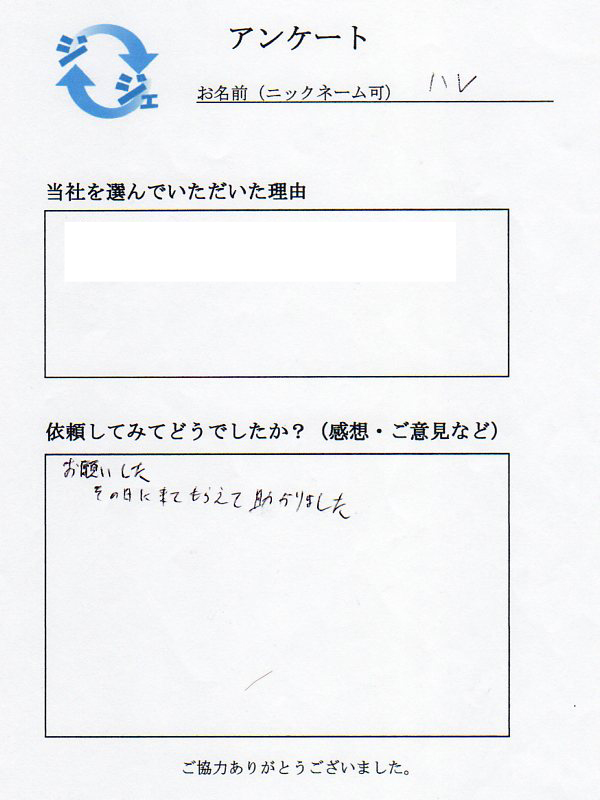 ジジェ
アンケート
お名前（ニックネーム可） ハレ
当社を選んでいただいた理由
依頼してみてどうでしたか？（感想・ご意見など）
お願いした
その日に来てもらえて助かりました
ご協力ありがとうございました。